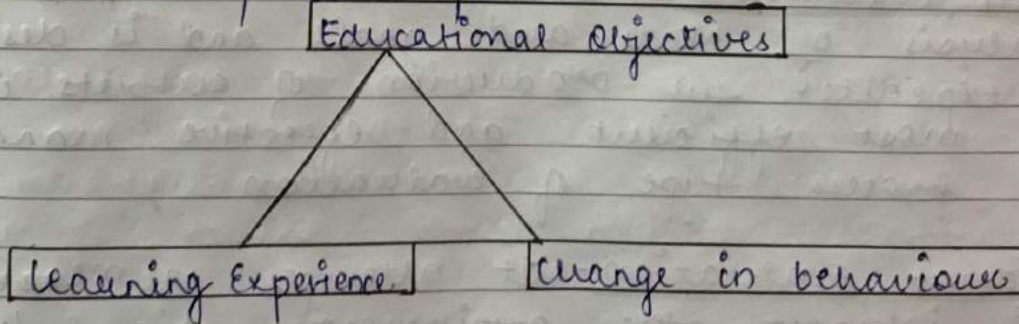 Educational Objectives
Learning Experience
Change in behaviour